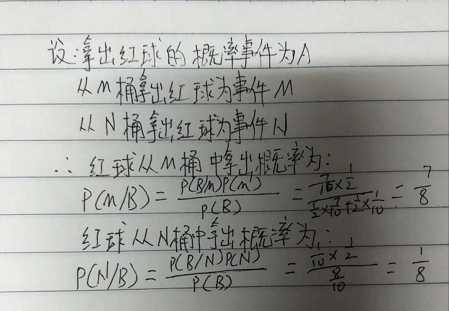 设:拿出红球的概率事件为A
从M桶拿出红球为事件M
从N桶拿出红球为事件N
∴ 红球从M桶中拿出概率为:
P(M/B) = P(B/M)P(M) / P(B) = 7/10 × 1/2 / 1/2 × 7/10 + 1/2 × 1/10 = 7/8
红球从N桶中拿出概率为:
P(N/B) = P(B/N)P(N) / P(B) = 1/10 × 1/2 / 8/10 = 1/8